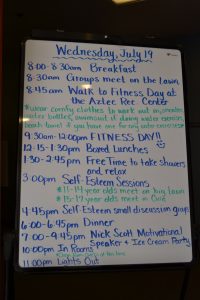 Wednesday, July 19
8:00-8:30am Breakfast
8:30am Groups meet on the lawn
8:45am Walk to Fitness Day at
the Aztec Rec Center
*wear comfy clothes to work out in, sneakers,
water bottles, swimsuit if doing water exercise,
beach towel if you have one for any exercise
9:30am-12:00pm FITNESS DAY!!
12:15-1:30pm Boxed Lunches
1:30-2:45pm Free Time to take showers
and relax
3:00pm Self-Esteem Sessions
*11-14 year olds meet on big lawn
*15-17 year olds meet in
4:45pm Self-Esteem small discussion groups
6:00-6:45pm Dinner
7:00-9:45pm Nick Scott Motivational
Speaker + Ice Cream Party
10:00pm In Rooms
11:00pm Lights Out